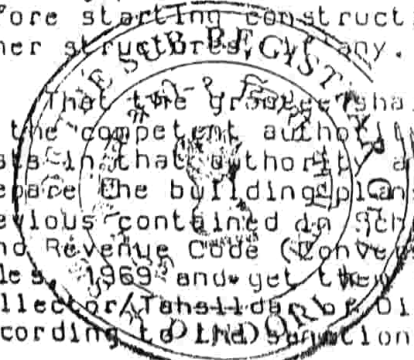 fore starting construct
her structures, if any.
That the grantee sha
the competent authorit
sts in that authority a
epare the building plan
evious contained in Sch
nd Revenue Code (Convers
les, 1969 and get them
llector/Tahsildar of Di
cording to the sanction
THE SUB-REGISTRAR
DINDORI